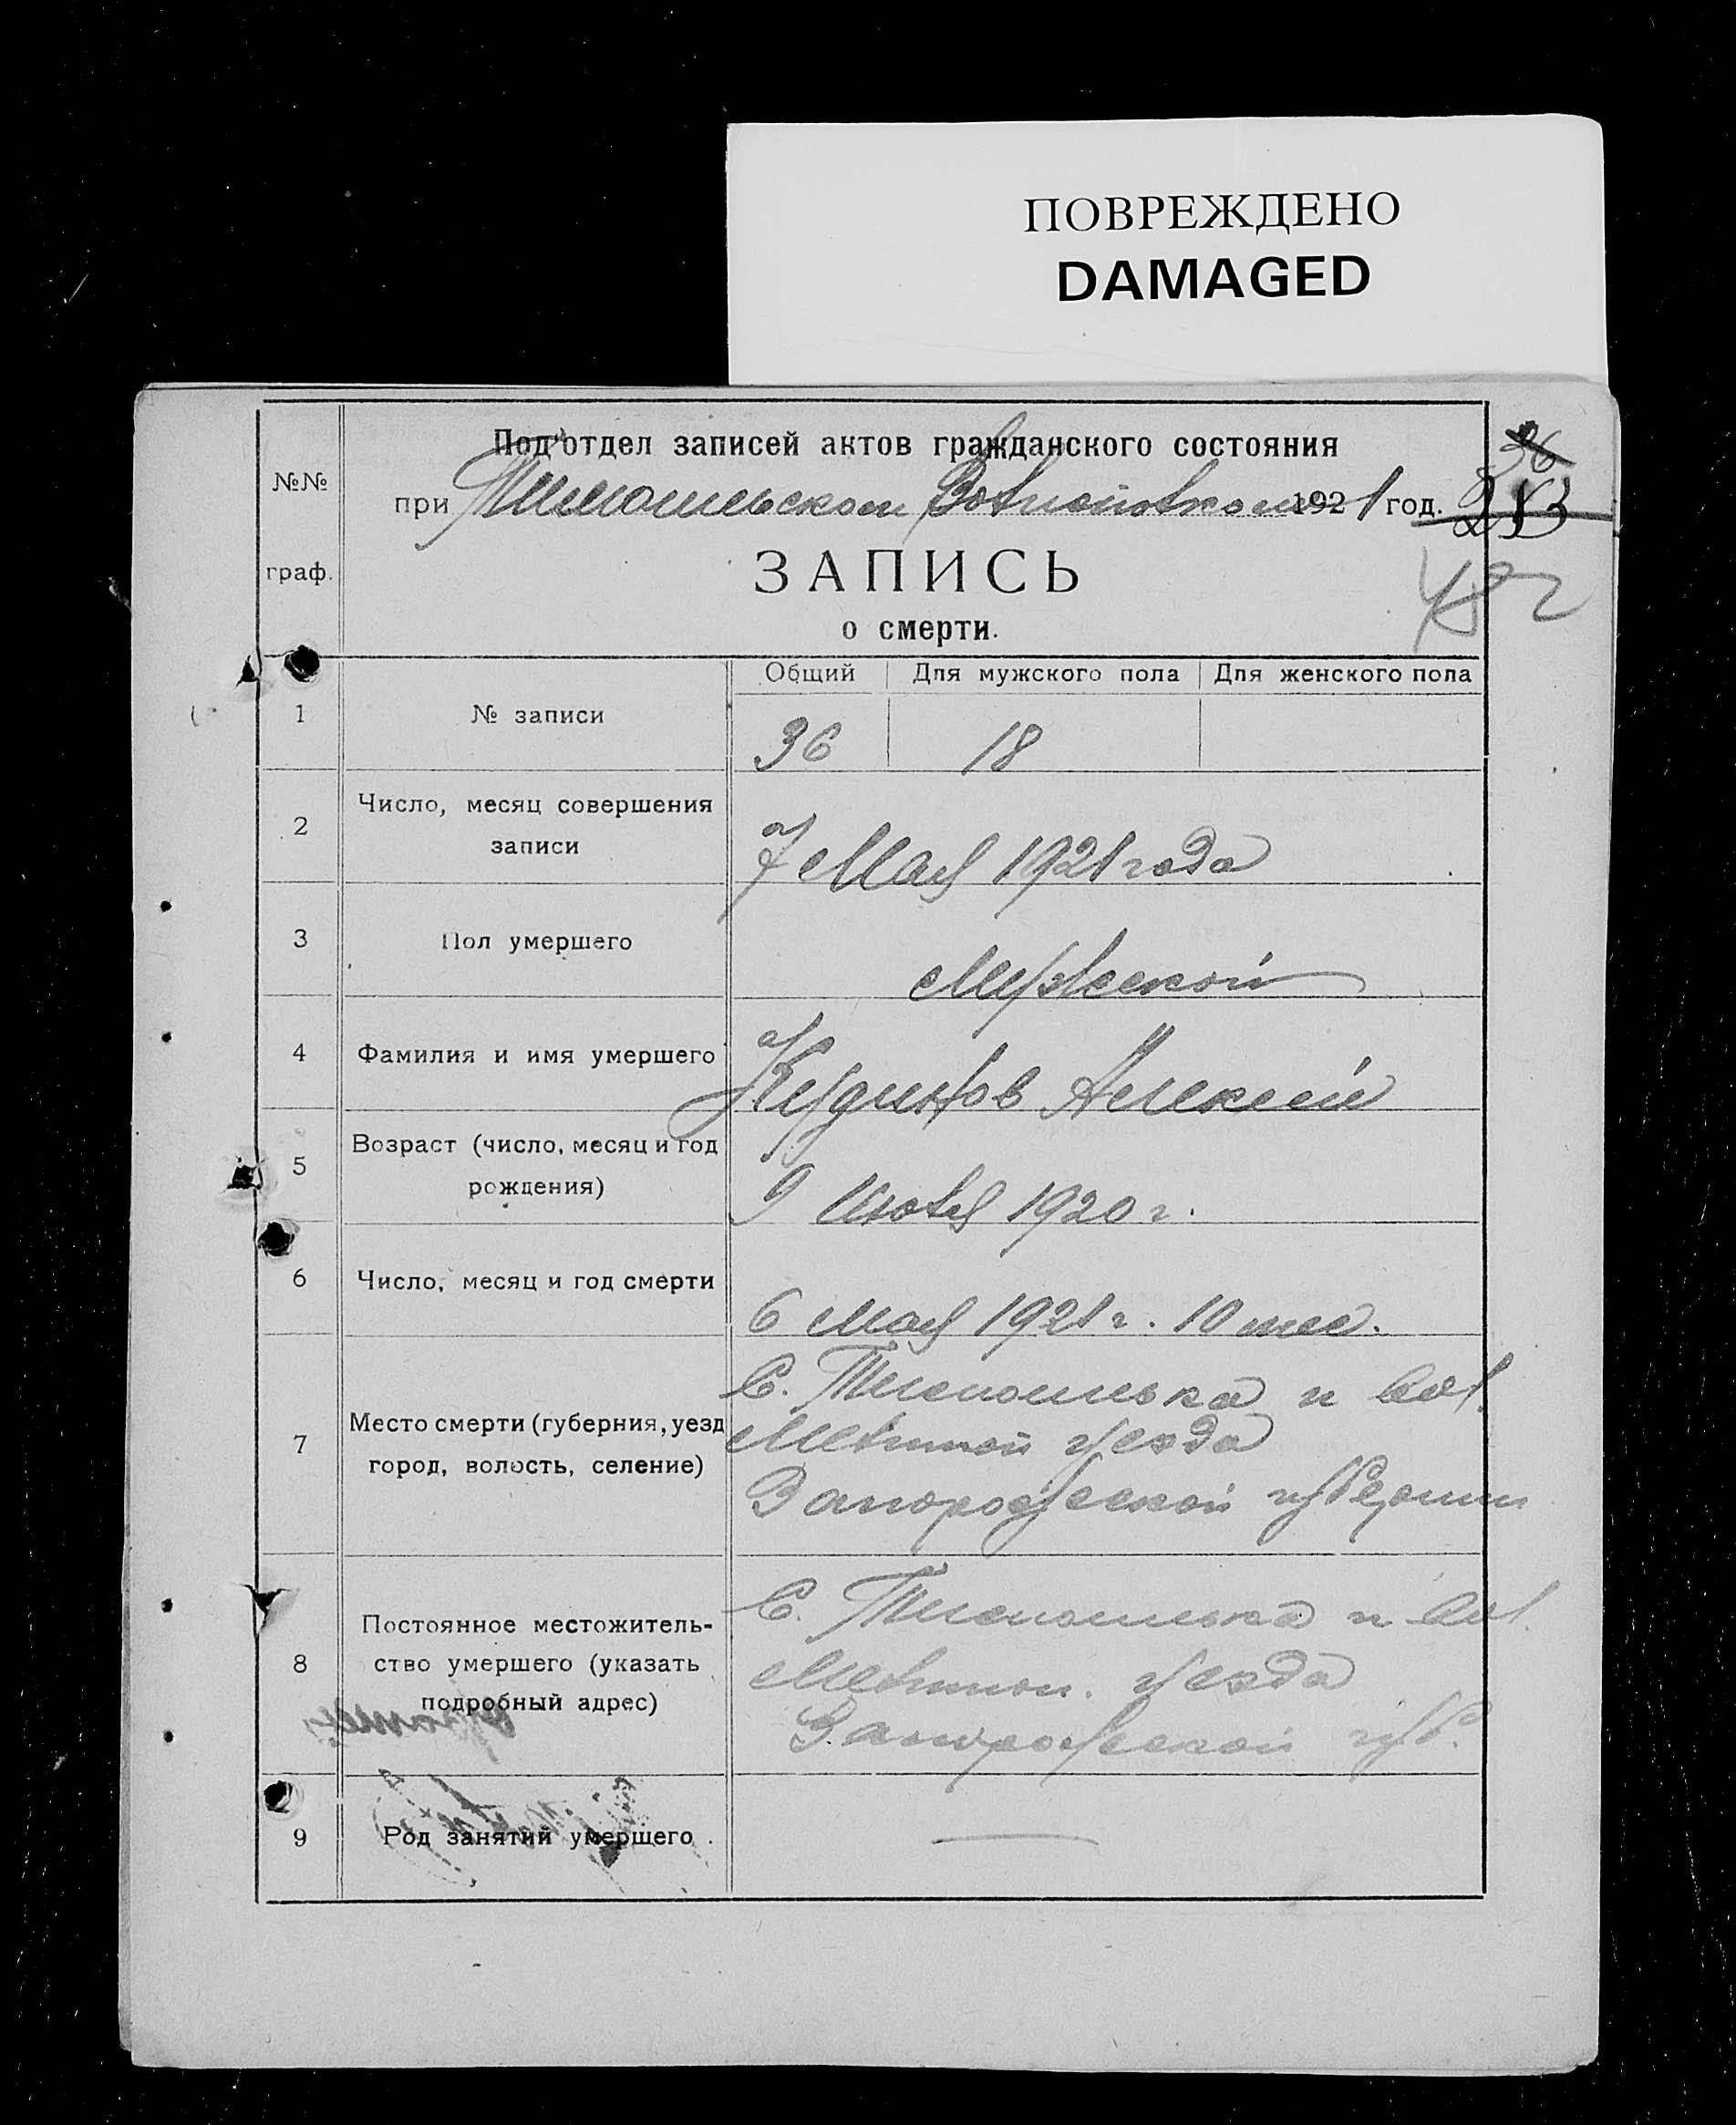 ПОВРЕЖДЕНО
DAMAGED
Под'отдел записей актов гражданского состояния
при 1921 год.
36
213
482
№№
граф.
ЗАПИСЬ
о смерти.
Общий Для мужского пола Для женского пола
1 № записи 36 18
2 Число, месяц совершения
записи
7 Мая 1921 года
3 Пол умершего Мужеской
4 Фамилия и имя умершего Кудинов Алексей
5 Возраст (число, месяц и год
рождения)
9 1920 г.
6 Число, месяц и год смерти 6 Мая 1921 г. 10 мес.
7 Место смерти (губерния, уезд
город, волость, селение)
С. Тимошовка и вол.
Мелитоп уезда
Запорожеской губернии
8 Постоянное местожитель-
ство умершего (указать
подробный адрес)
С. Тимошовка и вол.
Мелитоп. уезда
Запорожеской губ.
9 Род занятий умершего